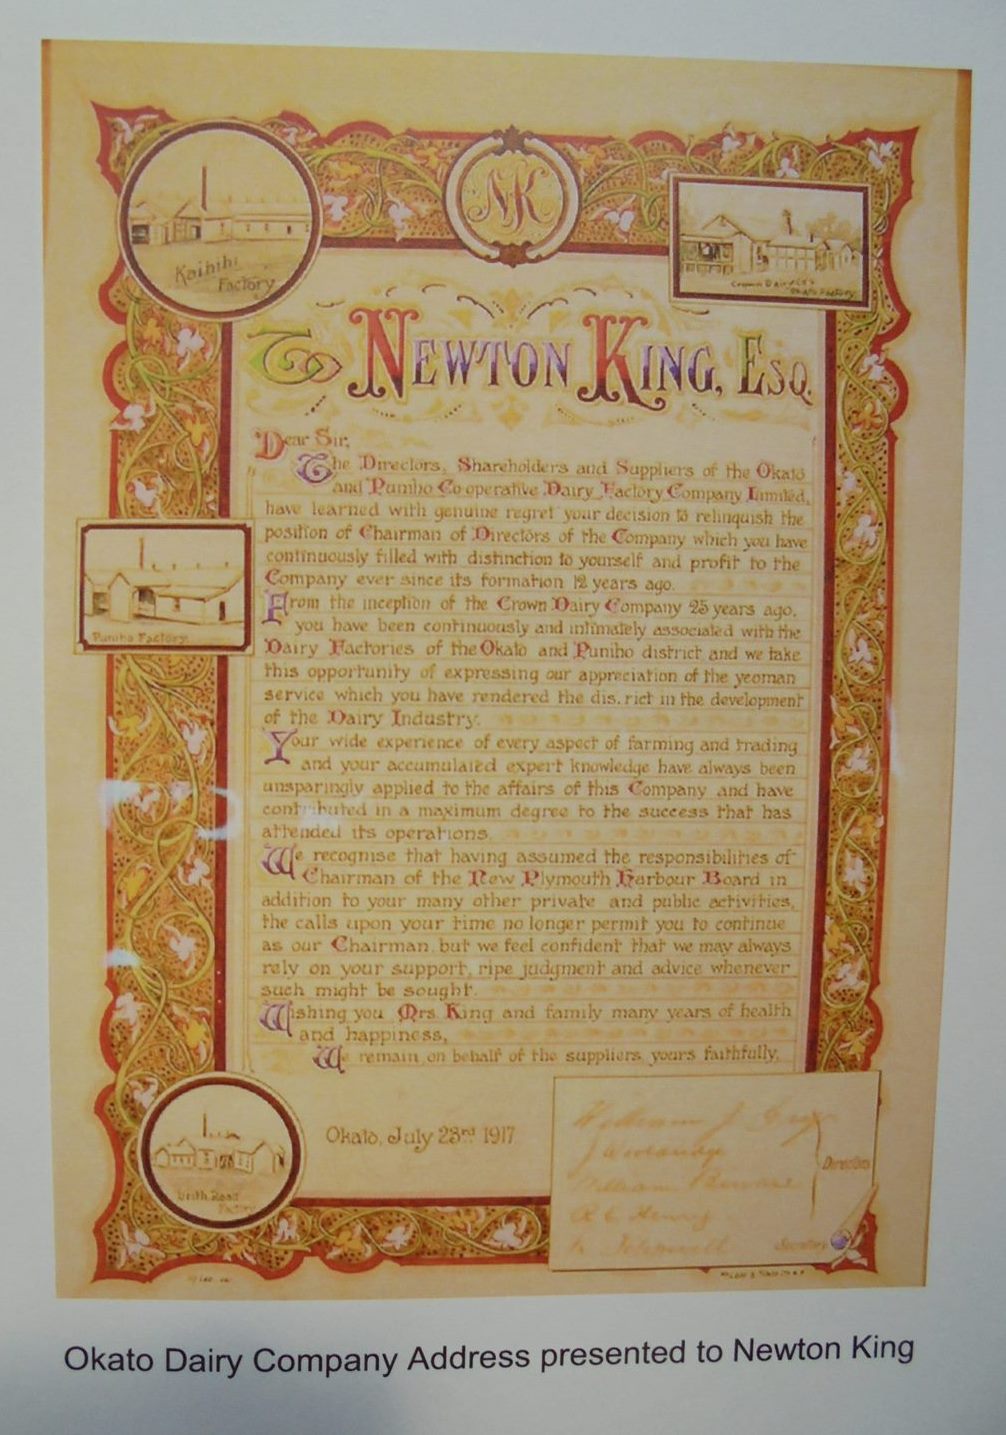 Kaihihi
Factory
NK
Crown Dairy Co's
Okato Factory
To Newton King, Esq.
Dear Sir,
The Directors, Shareholders and Suppliers of the Okato
and Puniho Co operative Dairy Factory Company Limited,
have learned with genuine regret your decision to relinquish the
position of Chairman of Directors of the Company which you have
continuously filled with distinction to yourself and profit to the
Company ever since its formation 12 years ago.
From the inception of the Crown Dairy Company 25 years ago,
you have been continuously and intimately associated with the
Dairy Factories of the Okato and Puniho district and we take
this opportunity of expressing our appreciation of the yeoman
service which you have rendered the district in the development
of the Dairy Industry.
Your wide experience of every aspect of farming and trading
and your accumulated expert knowledge have always been
unsparingly applied to the affairs of this Company and have
contributed in a maximum degree to the success that has
attended its operations.
We recognise that having assumed the responsibilities of
Chairman of the New Plymouth Harbour Board in
addition to your many other private and public activities,
the calls upon your time no longer permit you to continue
as our Chairman, but we feel confident that we may always
rely on your support, ripe judgment and advice whenever
such might be sought.
Wishing you Mrs. King and family many years of health
and happiness,
We remain, on behalf of the suppliers, yours faithfully,
Puniho Factory.
Okato, July 23rd 1917
William J. Gray
William
Directors
Secretary
Road
Factory
Okato Dairy Company Address presented to Newton King